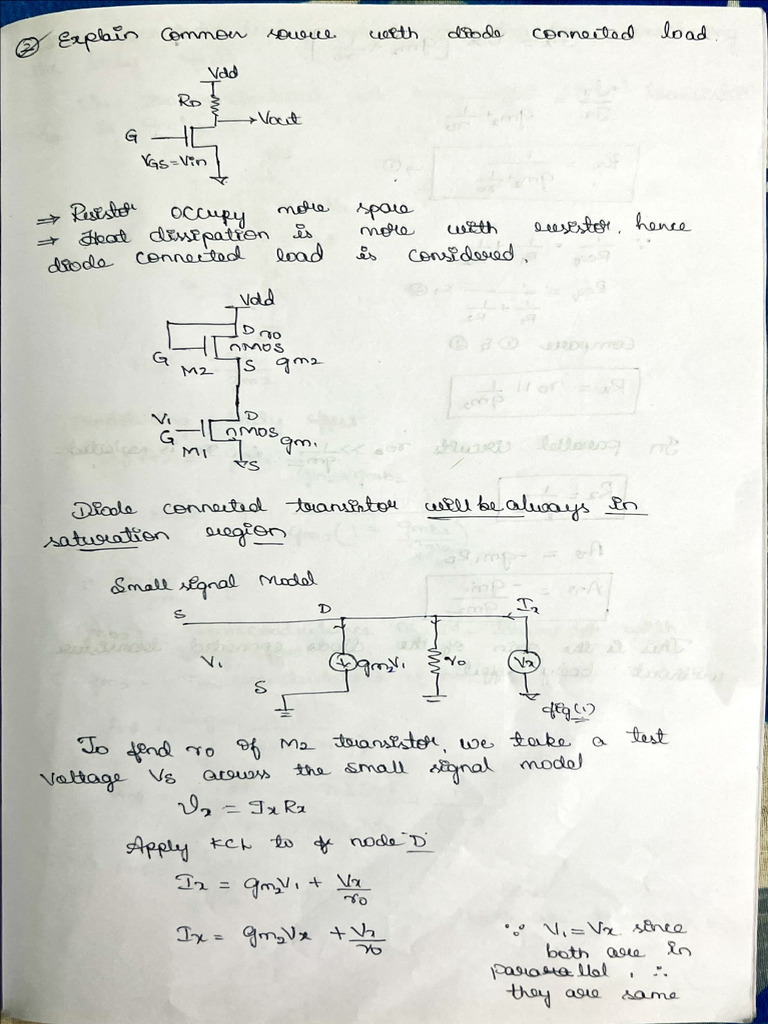 ② Explain Common source with diode connected load.
Vdd
RD
Vout
G
VGS=Vin
⇒ Resistor occupy more space
⇒ Heat dissipation is more with resistor, hence
diode connected load is considered.
Vdd
D ro
nMOS
G
M2
S gm2
V1
D
G
nMOS
gm1
M1
S
Diode connected transistor will be always in
saturation region
Small signal Model
S D Ix
V1 gm2V1 ro Vx
S
fig(1)
To find ro of M2 transistor, we take a test
Voltage Vs across the small signal model
Vx = Ix Rx
Apply KCL to node "D"
Ix = gm2V1 + Vx/ro
Ix = gm2Vx + Vx/ro
∵ V1 = Vx since
both are in
pararallel, ∴
they are same